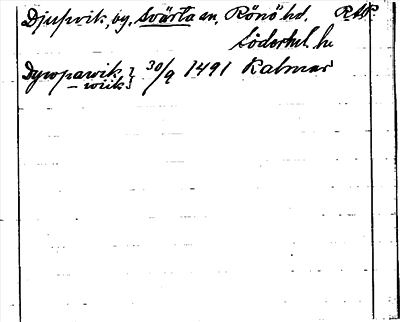 Djupvik, by, Svärta sn, Rönö hd. RAP.
Söderml. ln
Dywpawik } 30/9 1491 Kalmar
– wiik }